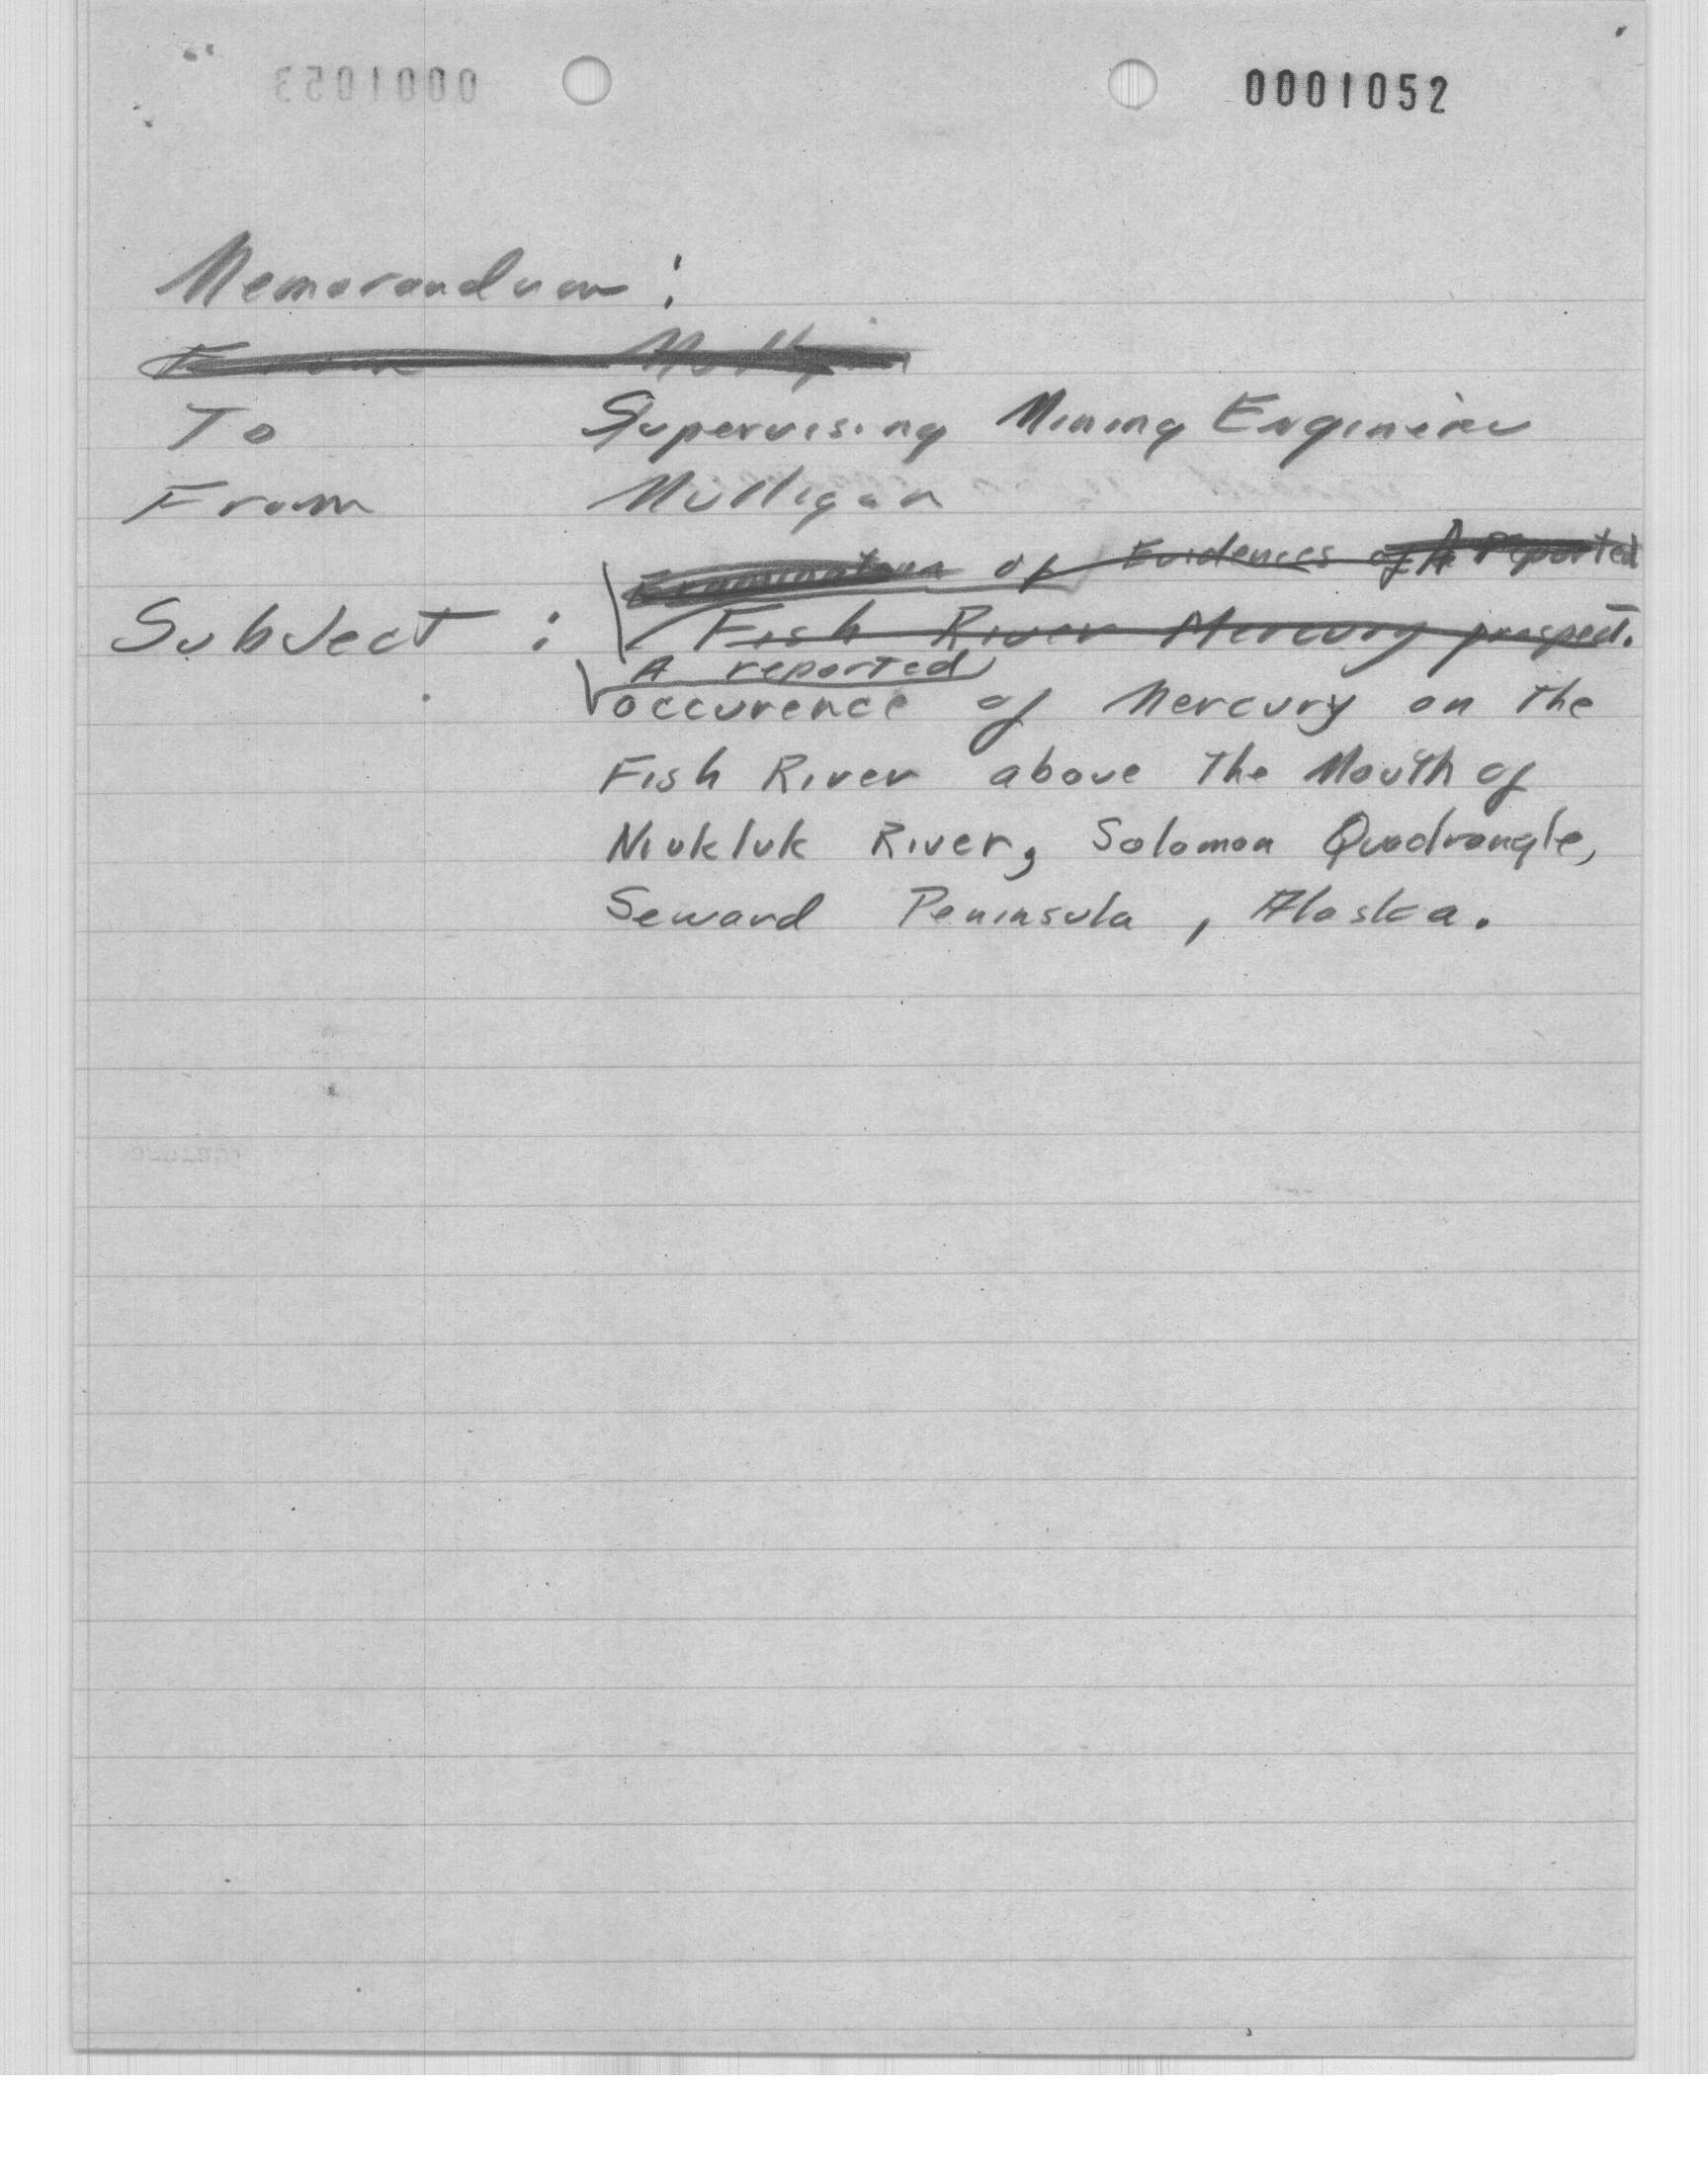 0001052
Memorandum :
From Mulligan
To Supervising Mining Engineer
From Mulligan
Examination of Evidences of A Reported
Subject : Fish River Mercury prospect.
A reported
occurence of Mercury on The
Fish River above The Mouth of
Niukluk River, Solomon Quadrangle,
Seward Peninsula, Alaska.